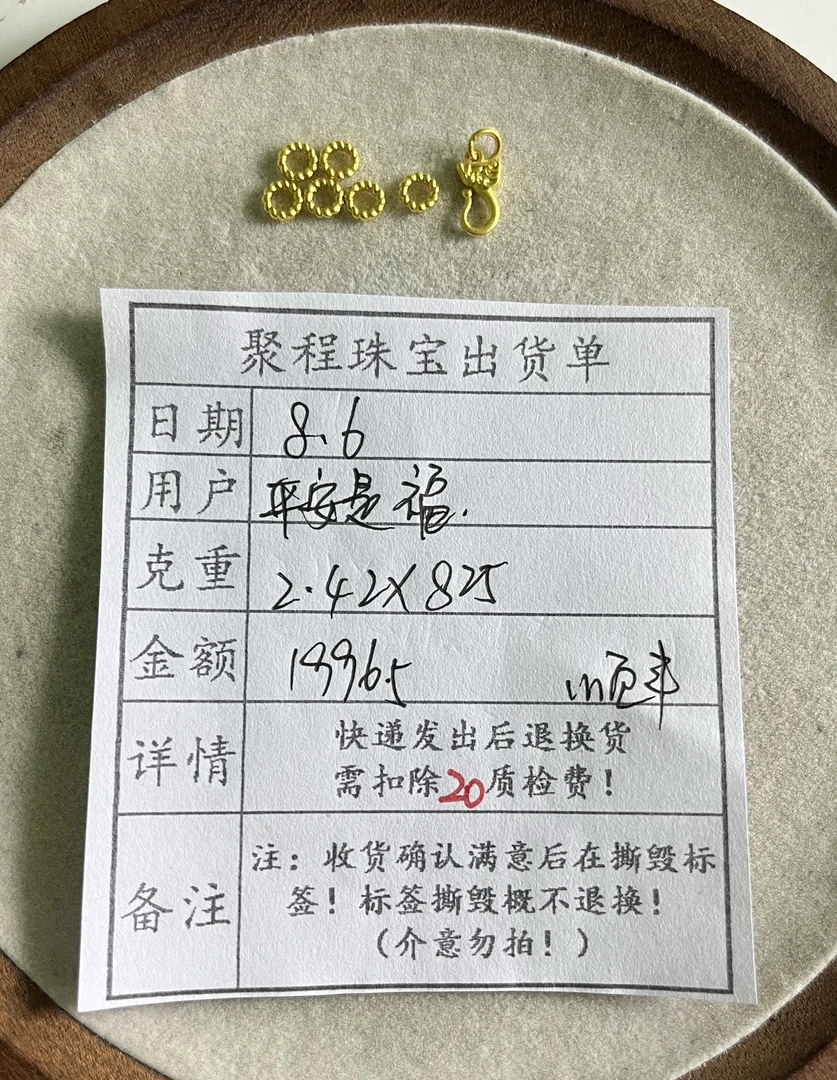 聚程珠宝出货单
日期 8.6
用户 平安是福.
克重 2.42X825
金额 1996.5 顺丰
详情 快递发出后退换货
需扣除20质检费!
备注 注:收货确认满意后在撕毁标
签!标签撕毁概不退换!
(介意勿拍!)